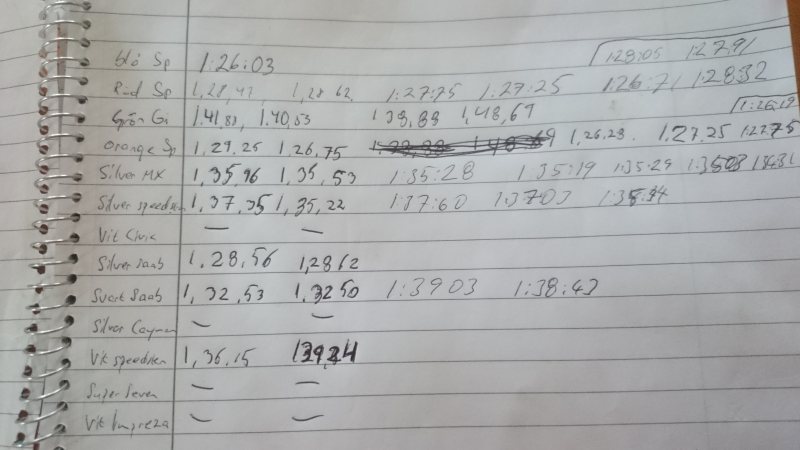 Blå Sp 1:26:03 1:28:05 1:27,91
Röd Sp 1,28,42 1,28 62, 1:27:75 1:27:25 1:26:71 1:28:32
Grön Gr 1.41,83, 1.40,53 1 39,88 1,48,69 1:26:19
Orange Sp 1,29,25 1,26,75 1,26,23. 1,27,25 1:27:75
Silver MX 1,35,96 1,35,53 1:35:28 1:35:19 1:35:29
Silver speedsten 1,37,35 1,35,22 1:37:60 1:3703 1:38:34
Vit Civic — —
Silver Saab 1,28,56 1,2862
Svart Saab 1,32,53 1,3250 1:3903 1:38:43
Silver Cayman — —
Vit speedsten 1,36,15
Super Seven — —
Vit Impreza — —